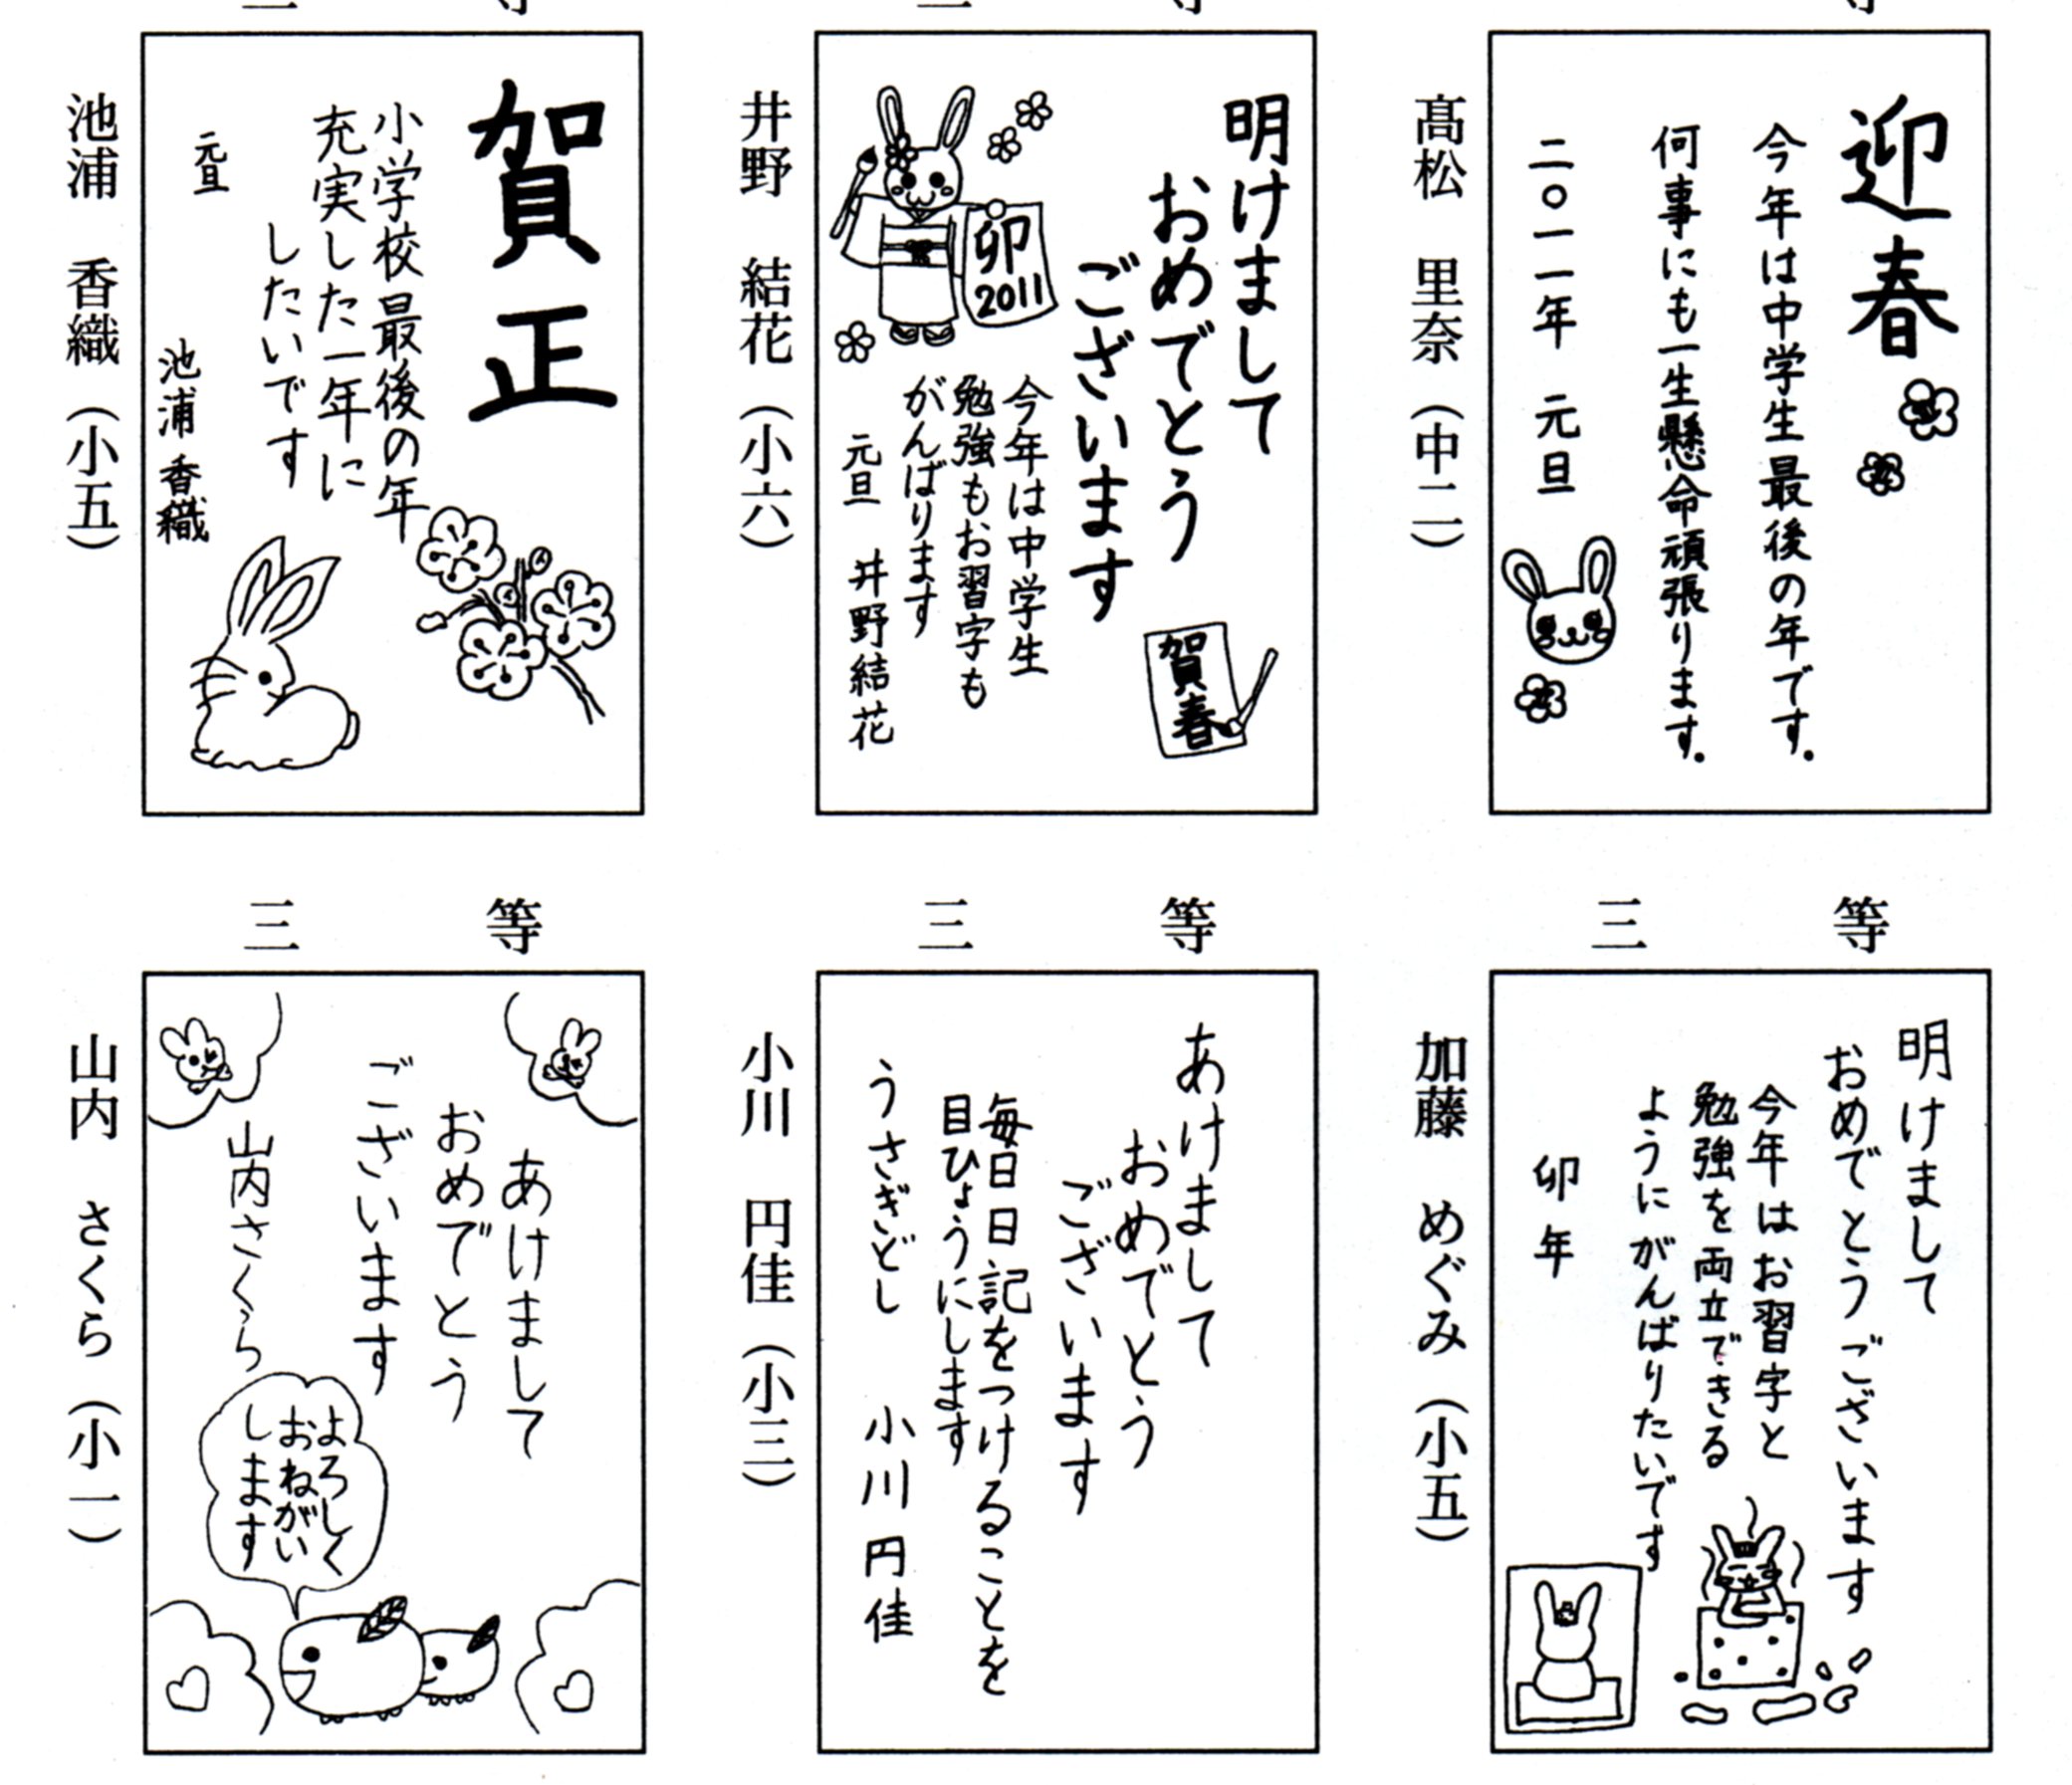 髙松　里奈（中二）
迎春
今年は中学生最後の年です。
何事にも一生懸命頑張ります。
二〇一一年　元旦
井野　結花（小六）
明けまして
おめでとう
ございます
賀春
卯
2011
今年は中学生
勉強もお習字も
がんばります
元旦　井野結花
池浦　香織（小五）
賀正
小学校最後の年
充実した一年に
したいです
元旦
池浦香織
三等
加藤　めぐみ（小五）
明けまして
おめでとうございます
今年はお習字と
勉強を両立できる
ようにがんばりたいです
卯年
三等
小川　円佳（小三）
あけまして
おめでとう
ございます
毎日日記をつけることを
目ひょうにします
うさぎどし　小川円佳
三等
山内　さくら（小一）
あけまして
おめでとう
ございます
山内さくら
よろしく
おねがい
します